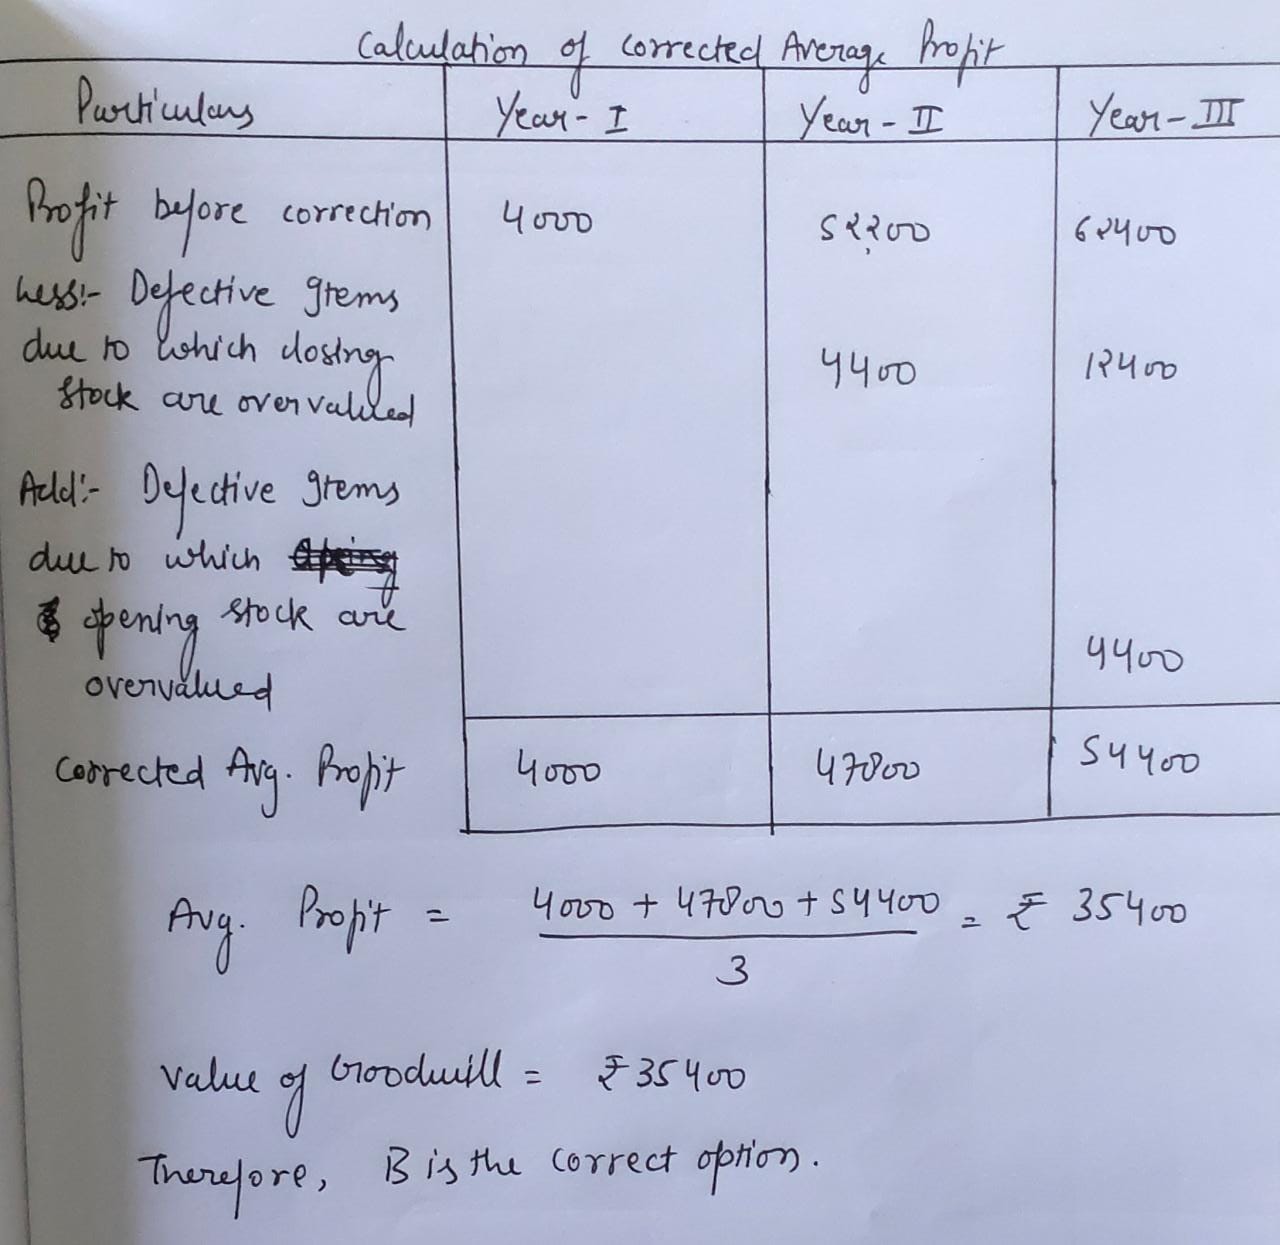 Calculation of corrected Average Profit
Particulars Year-I Year-II Year-III
Profit before correction 4000 52200 62400
Less:- Defective Items
due to which closing 4400 12400
stock are overvalued
Add:- Defective Items
due to which
opening stock are
overvalued 4400
Corrected Avg. Profit 4000 47800 54400
Avg. Profit = 4000 + 47800 + 54400 = ₹ 35400
3
Value of Goodwill = ₹35400
Therefore, B is the correct option.